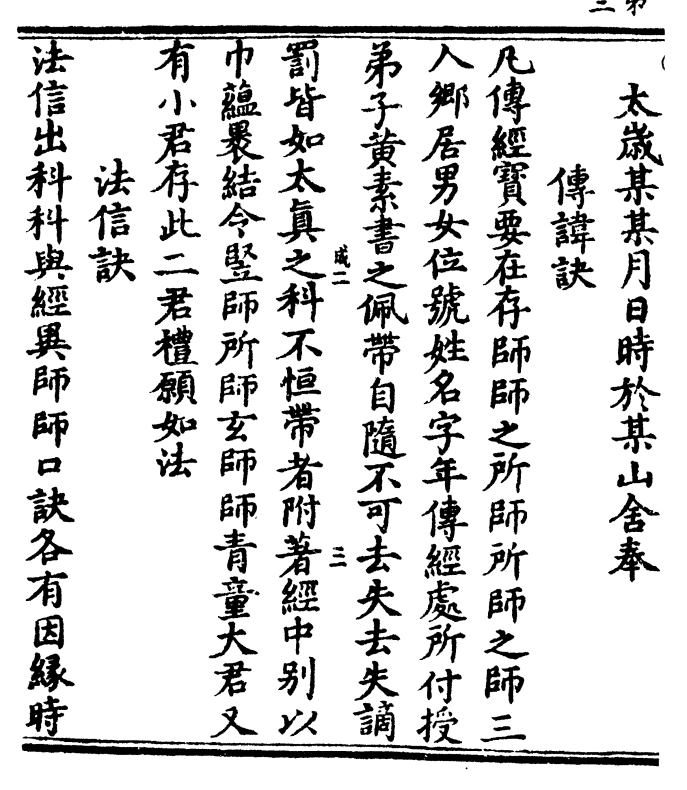 太歲某某月日時於某山舍奉
傳諱訣
凡傳經寶要在存師師之所師所師之師三
人鄉居男女位號姓名字年傳經處所付授
弟子黃素書之佩帶自隨不可去失去失謫
罰皆如太眞之科不恒帶者附著經中別以
巾蘊褁結令竪師所師玄師師青童大君又
有小君存此二君禮願如法
法信訣
法信出科科與經異師師口訣各有因緣時
三